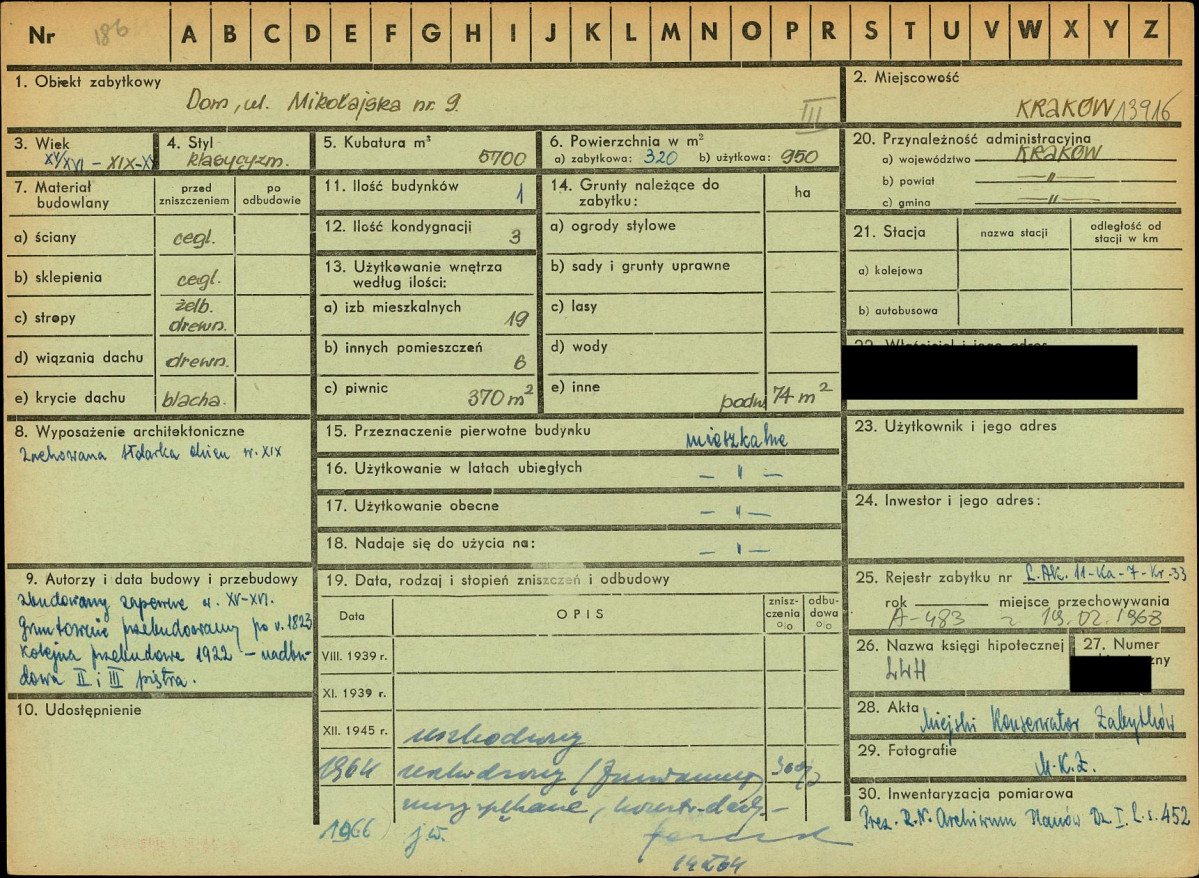 Nr 186 A B C D E F G H I J K L M N O P R S T U V W X Y Z
1. Obiekt zabytkowy
Dom, ul. Mikołajska nr. 9.
III
2. Miejscowość
KRAKÓW 13916
3. Wiek
XV/XVI - XIX-XX
4. Styl
klasycyzm.
5. Kubatura m³
5700
6. Powierzchnia w m²
a) zabytkowa: 320 b) użytkowa: 950
20. Przynależność administracyjna
a) województwo KRAKÓW
b) powiat — " —
c) gmina — " —
7. Materiał budowlany
przed zniszczeniem
po odbudowie
a) ściany cegl.
b) sklepienia cegl.
c) stropy żelb. drewn.
d) wiązania dachu drewn.
e) krycie dachu blacha.
11. Ilość budynków 1
12. Ilość kondygnacji 3
13. Użytkowanie wnętrza
według ilości:
a) izb mieszkalnych 19
b) innych pomieszczeń 6
c) piwnic 370 m²
14. Grunty należące do
zabytku:
ha
a) ogrody stylowe
b) sady i grunty uprawne
c) lasy
d) wody
e) inne podw 74 m²
21. Stacja
nazwa stacji
odległość od
stacji w km
a) kolejowa
b) autobusowa
22. Właściciel i jego adres
8. Wyposażenie architektoniczne
Zachowana stolarka drzwi w. XIX
15. Przeznaczenie pierwotne budynku mieszkalne
16. Użytkowanie w latach ubiegłych — " —
17. Użytkowanie obecne — " —
18. Nadaje się do użycia na: — " —
23. Użytkownik i jego adres
24. Inwestor i jego adres:
9. Autorzy i data budowy i przebudowy
zbudowany zapewne w. XV-XVI.
Gruntownie przebudowany po r. 1823
Kolejna przebudowa 1922 - nadbu-
dowa II i III piętra.
10. Udostępnienie
19. Data, rodzaj i stopień zniszczeń i odbudowy
Data
OPIS
znisz-
czenia
%
odbu-
dowa
%
VIII. 1939 r.
XI. 1939 r.
XII. 1945 r. uszkodzony
1964 uszkodzony (fundamenty
1966 j.w.
25. Rejestr zabytku nr L.Ak. 11-Ka-7-Kr-33
rok miejsce przechowywania
A-483 z 19.02.1968
26. Nazwa księgi hipotecznej
LWH
27. Numer
28. Akta
Miejski Konserwator Zabytków
29. Fotografie
M.K.Z.
30. Inwentaryzacja pomiarowa
Prez. R.N. Archiwum Planów Dz. I. L.s. 452